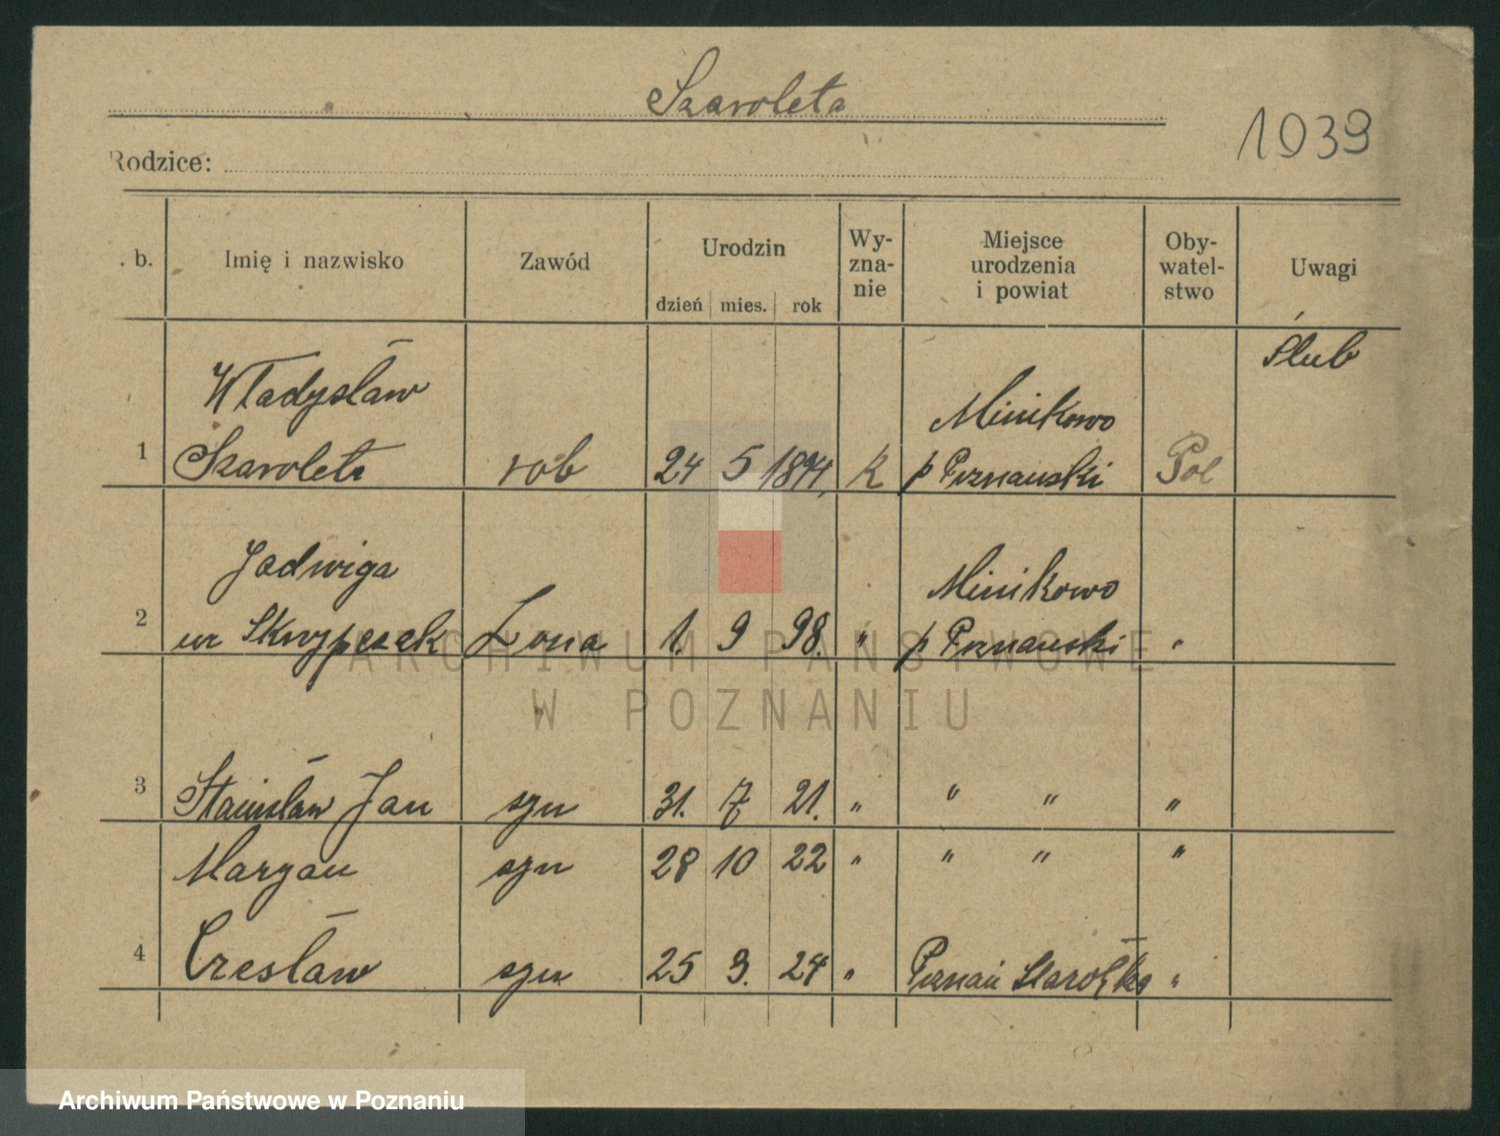 Szaroleta
1039
Rodzice:
. b. Imię i nazwisko Zawód Urodzin dzień mies. rok Wy-zna-nie Miejsce urodzenia i powiat Oby-watel-stwo Uwagi
Ślub
Władysław Minikowo
1 Szaroleta rob 24 5 1894, k p Poznański Pol
Jadwiga Minikowo
2 ur Skrzypczak Żona 1. 9 98. " p Poznański "
3 Stanisław Jan syn 31. 7 21. " " " "
Maryan syn 28 10 22 " " " "
4 Czesław syn 25 3. 24 " Poznań Starołęka "
ARCHIWUM PAŃSTWOWE
W POZNANIU
Archiwum Państwowe w Poznaniu